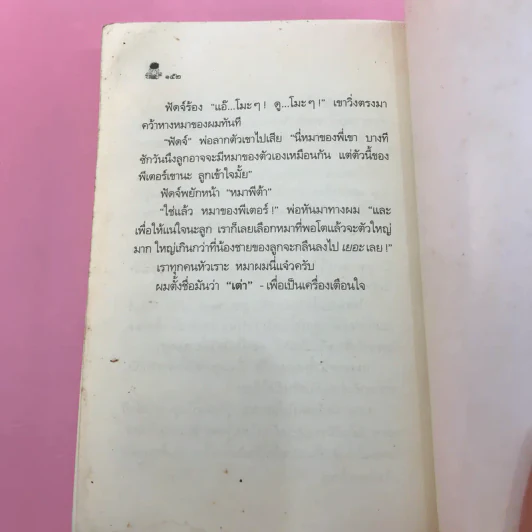 ๑๕๒
ฟัดจ์ร้อง "แอ๊...โมะๆ! ดู...โมะๆ!" เขาวิ่งตรงมา
คว้าหางหมาของผมทันที
"ฟัดจ์" พ่อลากตัวเขาไปเสีย "นี่หมาของพี่เขา บางที
ซักวันนึงลูกอาจจะมีหมาของตัวเองเหมือนกัน แต่ตัวนี้ของ
พีเตอร์เขานะ ลูกเข้าใจมั้ย"
ฟัดจ์พยักหน้า "หมาพีต้า"
"ใช่แล้ว หมาของพีเตอร์!" พ่อหันมาทางผม "และ
เพื่อให้แน่ใจนะลูก เราก็เลยเลือกหมาที่พอโตแล้วจะตัวใหญ่
มาก ใหญ่เกินกว่าที่น้องชายของลูกจะกลืนลงไป เยอะเลย!"
เราทุกคนหัวเราะ หมาผมนี่แจ๋วครับ
ผมตั้งชื่อมันว่า "เต่า" - เพื่อเป็นเครื่องเตือนใจ